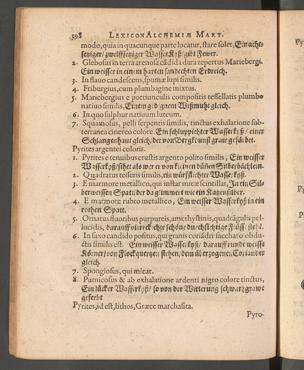 398 LEXICON ALCHEMIÆ MART.
modo, quia in quacunque parte locatur, stare solet, Ein acht-
seitiger/ zwelffseitiger Wasser Kiß/ gibt Fewer.
2. Glebosus in terra arenosa candida dura repertus Mariebergi.
Ein weisser in einem harten sandechten Erdreich.
3. In flauo candescens, spumæ lupi similis.
4. Friburgius, cum plumbagine mixtus.
5. Mariebergius e portiunculis compositis tessellatis plumbo
natiuo similis, Einem gediegem Wißmuht gleich.
6. In quo sulphur natiuum luteum.
7. Squamosus, pelli serpentis similis, tinctus exhalatione sub-
terranea cinereo colore, Ein schluppichter Wasser kyß/ einer
Schlangenhaut gleich/ der von Bergkdunst graw gefärbt.
Pyrites argentei coloris.
1. Pyrites e tenuibus crustis argento polito similis, Ein weisser
Wasserkyß/ sihet als wer er von kleinen dünen Silberblächlein.
2. Quadratus tesseris similis, ein würfflechter Wasser kyß.
3. E marmore metallico, qui instar micæ scintillat,
der da glimmert wie ein Katzensilber.
4. E marmore rubro metallico, Ein weisser Wasserkyß in ein
rothen Spatt.
5. Ornatus fluoribus purpureis, amethystinis, quadrangulis pel-
lucidis,
6. In saxo candido positus, qui granis coriandri saccharo obdu-
ctis similis est. Ein weisser Wasserkyß/ darauff runde weisse
Körner/ von Flockquertze stehen, dem überzogenen Coriander
gleich.
7. Spongiosus, qui micat.
8. Pumicosus & ab exhalatione ardenti nigro colore tinctus,
Ein lücker Wasserkyß/ so von der Witterung schwartzgrawe
geferbt
Pyrites, id est, lithos, Græce marchasita.
Pyro-